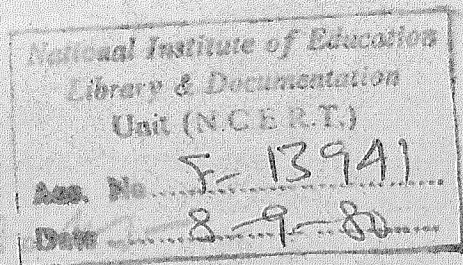 National Institute of Education
Library & Documentation
Unit (N.C.E.R.T.)
Acc. No. F- 13941
Date 8-9-80